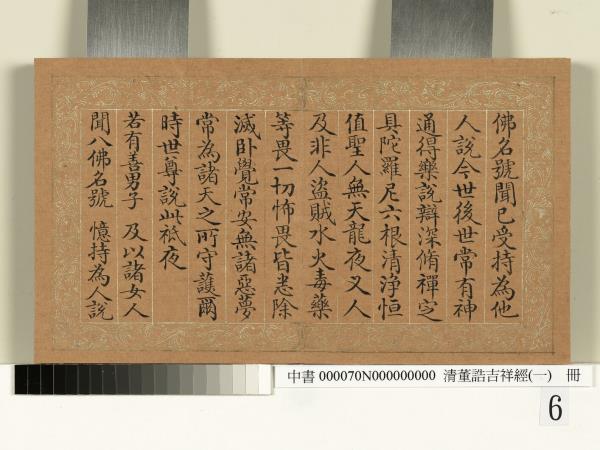 佛名號聞已受持為他
人說今世後世常有神
通得樂說辯深脩禪定
具陀羅尼六根清淨恒
值聖人無天龍夜叉人
及非人盜賊水火毒藥
等畏一切怖畏皆悉除
滅卧覺常安無諸惡夢
常為諸天之所守護爾
時世尊說此祇夜
若有善男子 及以諸女人
聞八佛名號 憶持為人說
中書 000070N000000000 清董誥吉祥經(一) 冊
6